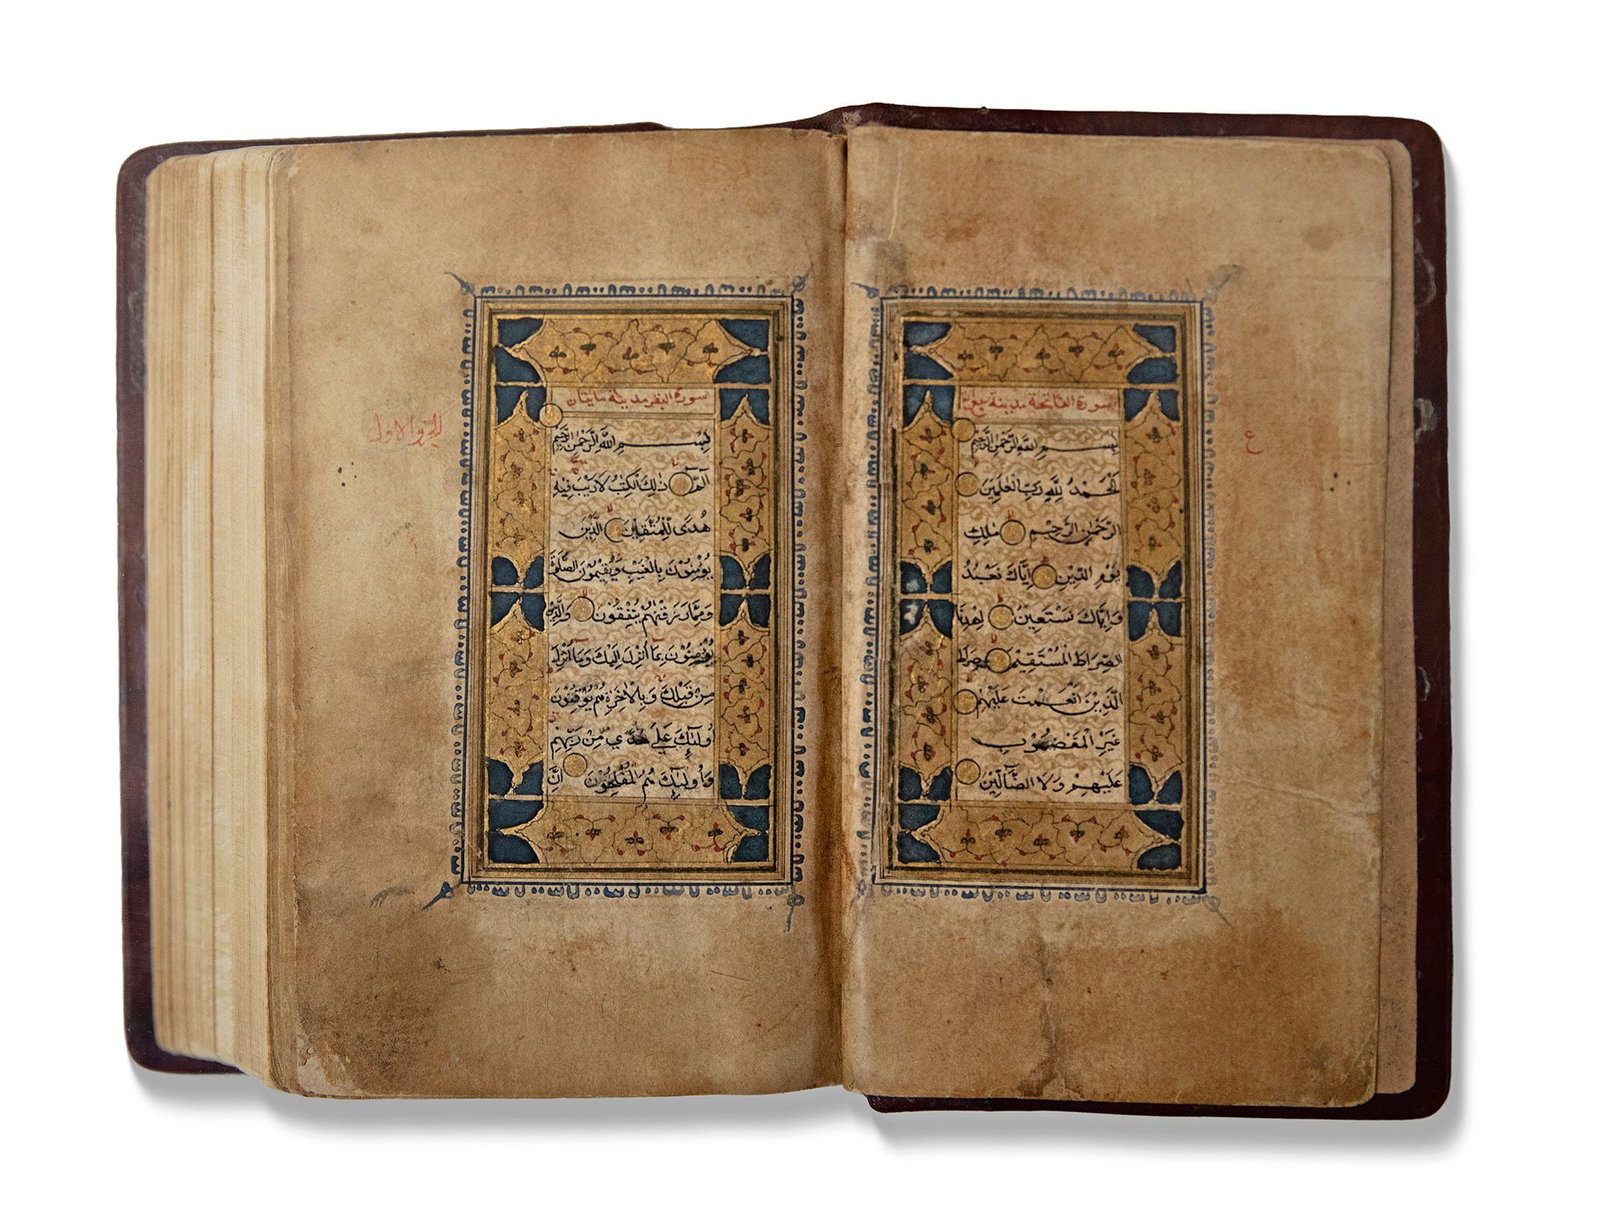 سورة الفاتحة مدينة سبع
ع
بِسْمِ اللهِ الرَّحْمٰنِ الرَّحِيمِ
اَلْحَمْدُ لِلّٰهِ رَبِّ الْعٰلَمِينَ
الرَّحْمٰنِ الرَّحِيمِ مٰلِكِ
يَوْمِ الدِّينِ اِيَّاكَ نَعْبُدُ
وَاِيَّاكَ نَسْتَعِينُ اِهْدِنَا
الصِّرَاطَ الْمُسْتَقِيمَ صِرَاطَ
الَّذِينَ اَنْعَمْتَ عَلَيْهِمْ
غَيْرِ الْمَغْضُوبِ
عَلَيْهِمْ وَلَا الضَّآلِّينَ
سورة البقر مدينة مايتان
الجزو الاول
بِسْمِ اللهِ الرَّحْمٰنِ الرَّحِيمِ
الٓمٓ ذٰلِكَ الْكِتٰبُ لَا رَيْبَ فِيهِ
هُدًى لِلْمُتَّقِينَ الَّذِينَ
يُؤْمِنُونَ بِالْغَيْبِ وَيُقِيمُونَ الصَّلٰوةَ
وَمِمَّا رَزَقْنٰهُمْ يُنْفِقُونَ وَالَّذِينَ
يُؤْمِنُونَ بِمَآ اُنْزِلَ اِلَيْكَ وَمَآ اُنْزِلَ
مِنْ قَبْلِكَ وَبِالْاٰخِرَةِ هُمْ يُوقِنُونَ
اُولٰٓئِكَ عَلٰى هُدًى مِنْ رَبِّهِمْ
وَاُولٰٓئِكَ هُمُ الْمُفْلِحُونَ اِنَّ